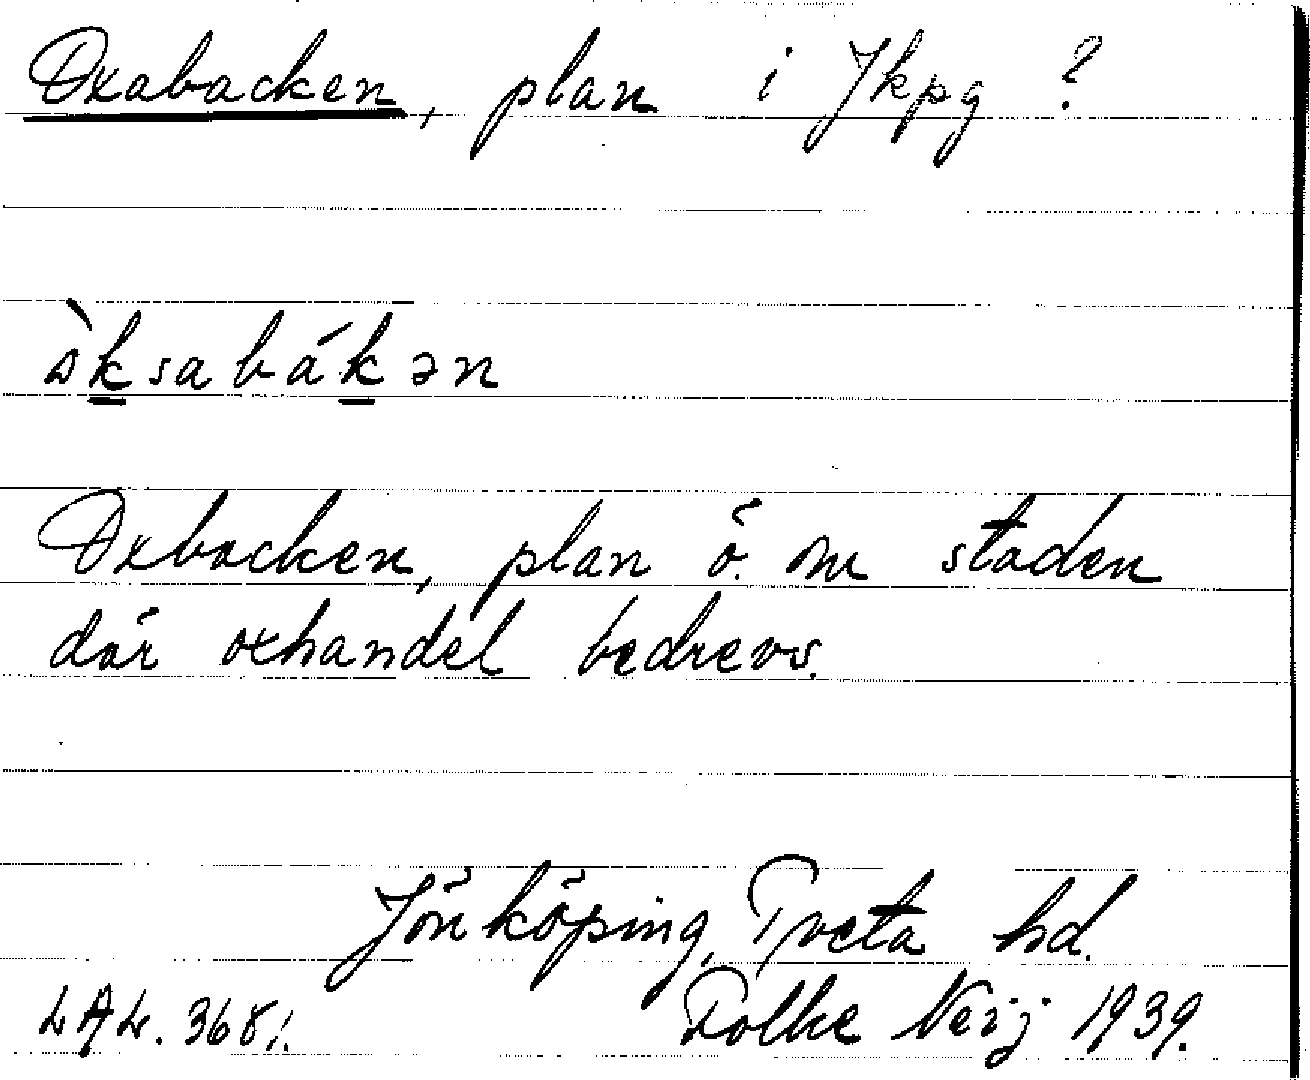 Oxabacken, plan i Jkpg ?
òksabákən
Oxbacken, plan ö. om staden
där oxhandel bedrevs.
Jönköping, Tveta hd.
Folke Neij 1939.